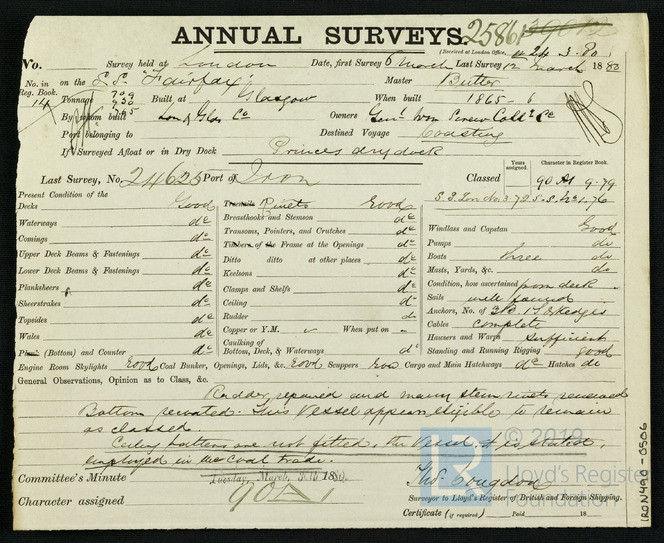 ANNUAL SURVEYS.
25861
(Received at London Office, 24.3.80)
No. Survey held at London Date, first Survey 6 March Last Survey 12 March 1880
No. in Reg. Book. 14 on the S.S. "Fairfax" Master Butter
Tonnage 709 Built at Glasgow When built 1865-6
By whom built Lon & Glas Co Owners Genl. Iron Screw Coll. Co
Port belonging to Destined Voyage Coasting
If Surveyed Afloat or in Dry Dock Princes dry dock
Last Survey, No. 24625 Port of Iron Classed Years assigned. Character in Register Book. 90 A1 9.79
Present Condition of the
Decks Good
Waterways do
Comings do
Upper Deck Beams & Fastenings do
Lower Deck Beams & Fastenings do
Planksheers do
Sheerstrakes do
Topsides do
Wales do
Plank (Bottom) and Counter do
Treenails Rivets Good
Breasthooks and Stemson do
Transoms, Pointers, and Crutches do
Timbers of the Frame at the Openings do
Ditto ditto at other places do
Keelsons do
Clamps and Shelfs do
Ceiling do
Rudder do
Copper or Y.M. When put on
Caulking of
Bottom, Deck, & Waterways do
Windlass and Capstan Good
Pumps do
Boats three do
Masts, Yards, &c. do
Condition, how ascertained from deck
Sails well found
Anchors, No. of
Cables complete
Hawsers and Warps sufficient
Standing and Running Rigging good
Engine Room Skylights Good Coal Bunker, Openings, Lids, &c. Good Scuppers Good Cargo and Main Hatchways do Hatches do
General Observations, Opinion as to Class, &c.
Rudder repaired and many stem rivets renewed
Bottom recoated. This Vessel appears eligible to remain
as classed.
Ceiling battens are not fitted, the Vessel, it is stated,
employed in the Coal trade.
Committee's Minute Tuesday, March, 30th 1880.
Character assigned 90A1
Thos. Congdon
Surveyor to Lloyd's Register of British and Foreign Shipping.
Certificate (if required) Paid 18
© 2019
Lloyd's Register
Foundation
IRON490-0506